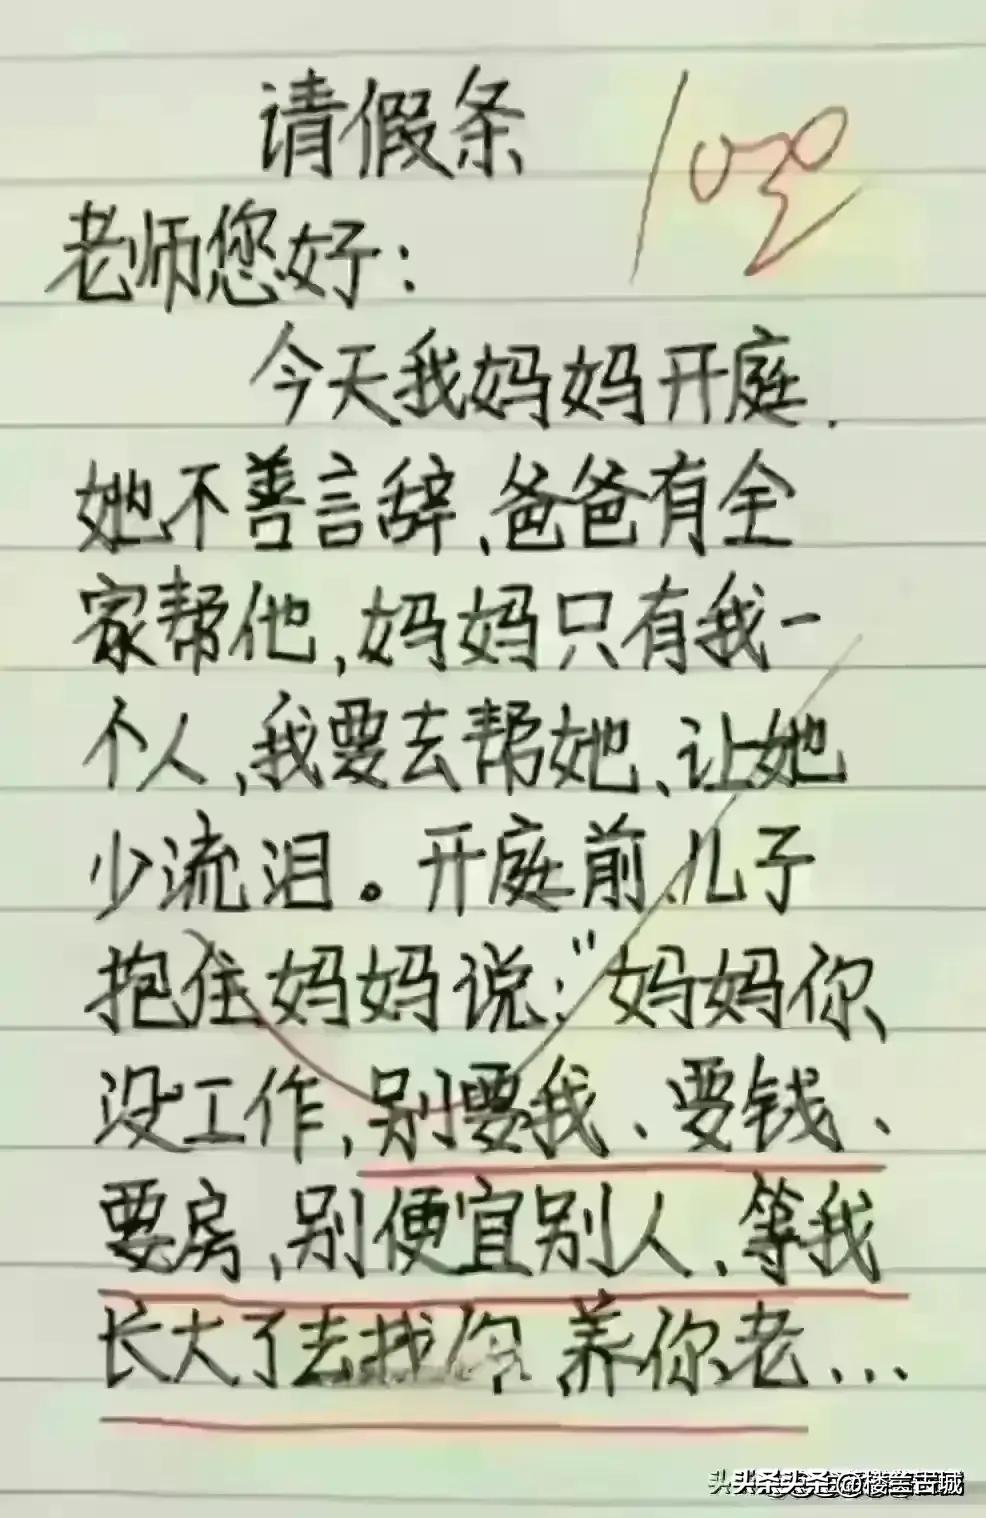 请假条
100
老师您好：
今天我妈妈开庭，
她不善言辞、爸爸有全
家帮他，妈妈只有我一
个人，我要去帮她、让她
少流泪。开庭前、儿子
抱住妈妈说：“妈妈你、
没工作，别要我、要钱、
要房，别便宜别人、等我
长大了去找你 养你老...
头条 @楼兰古城